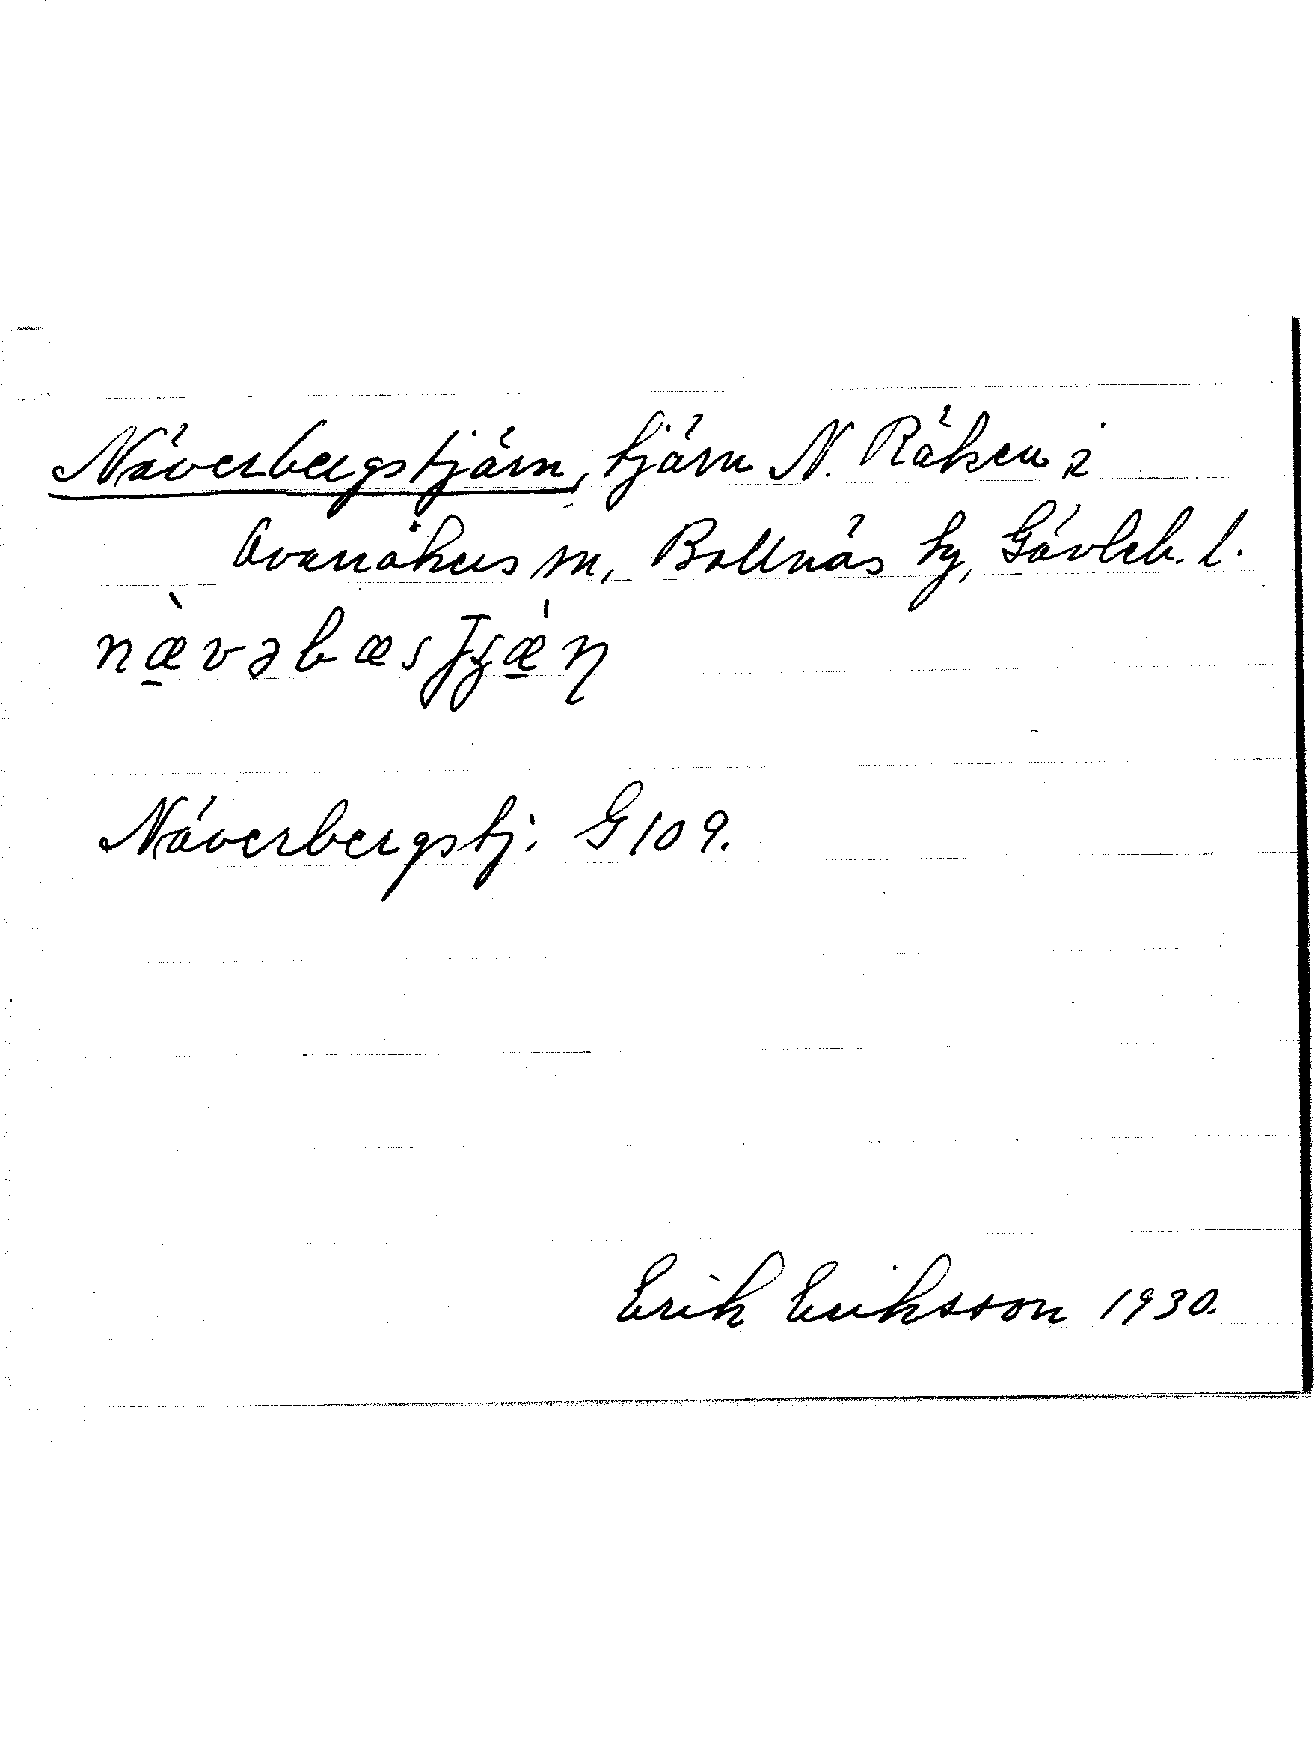 Näverbergstjärn, tjärn N. Räken i
Ovanåkers sn, Bollnäs tg, Gävleb. l.
Näverbergstj. G 109.
Erik Eriksson 1930.